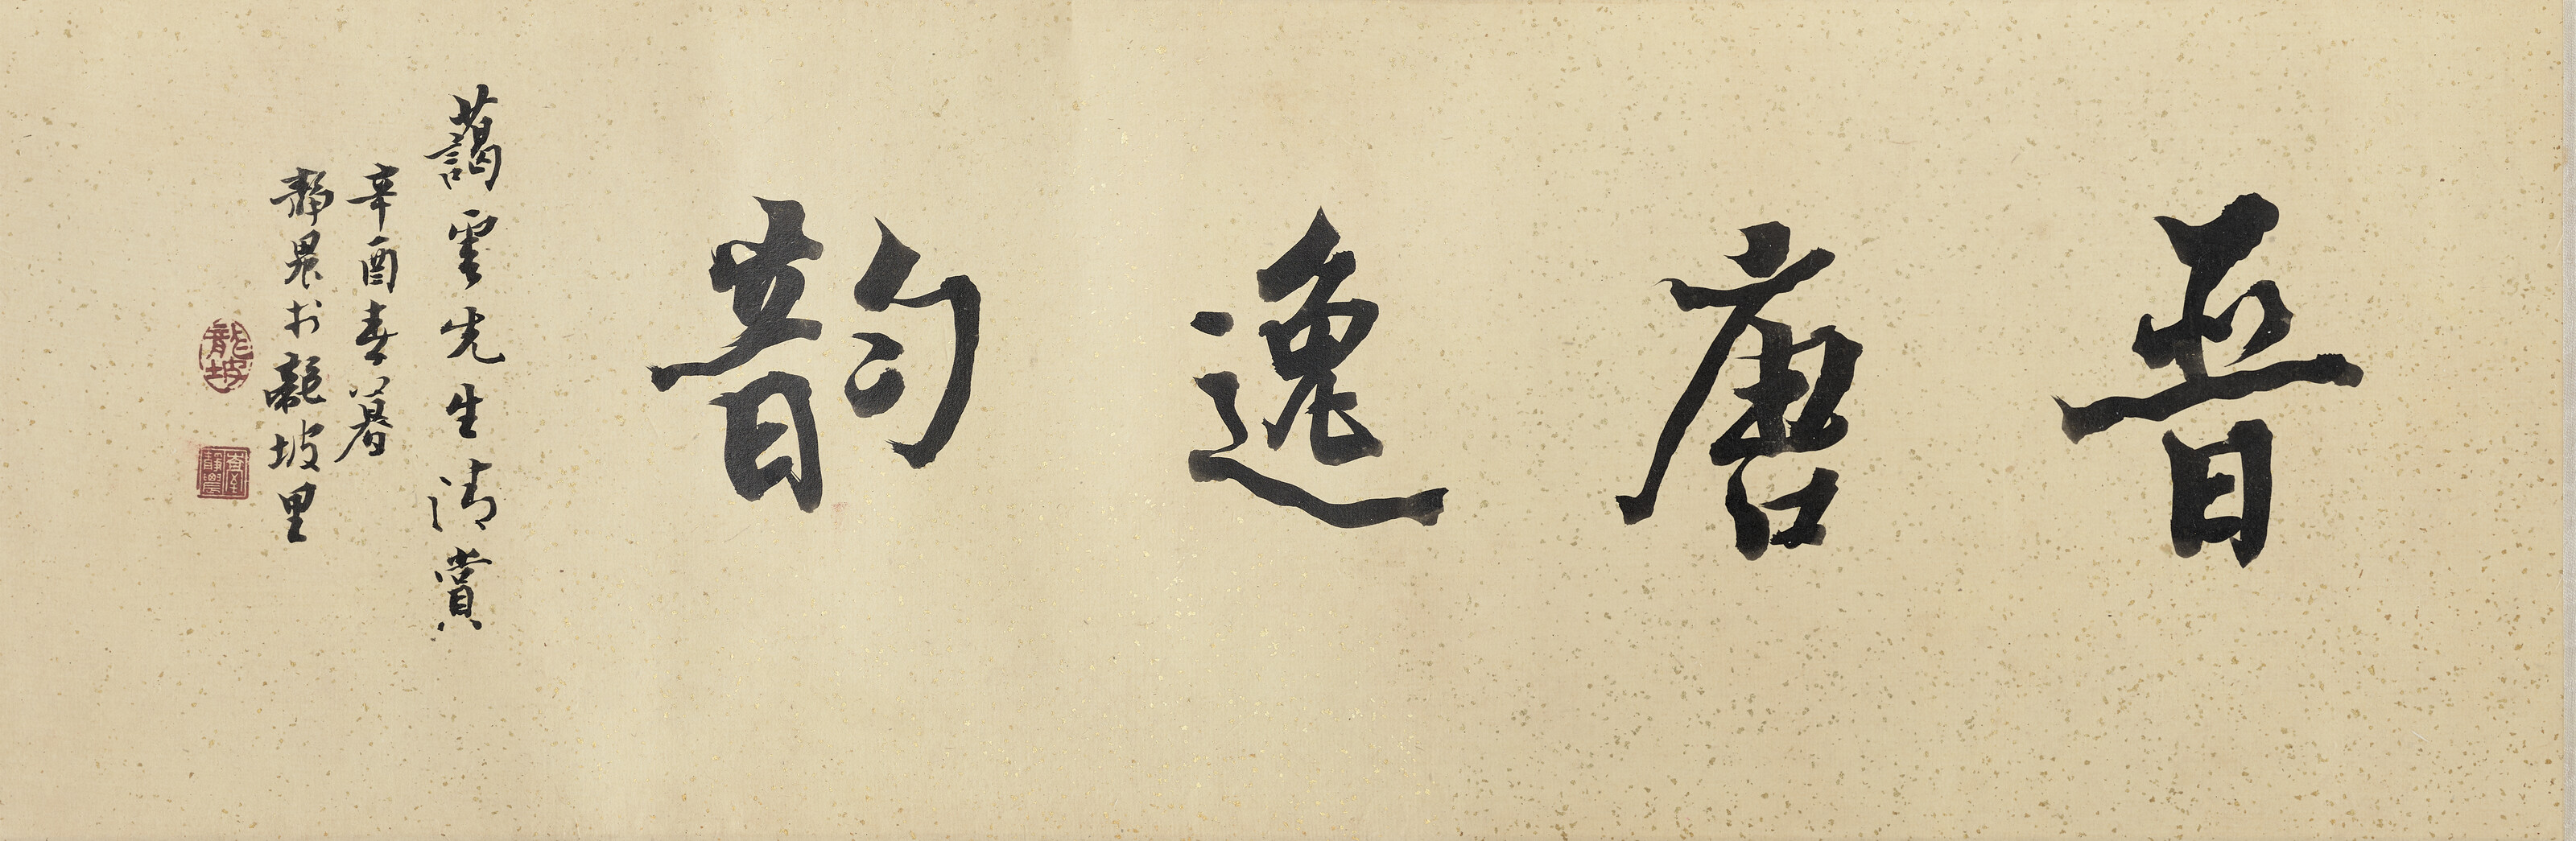 晉唐逸韵
藹雲先生清賞
辛酉春暮
靜農於龍坡里
龍坡
臺靜農